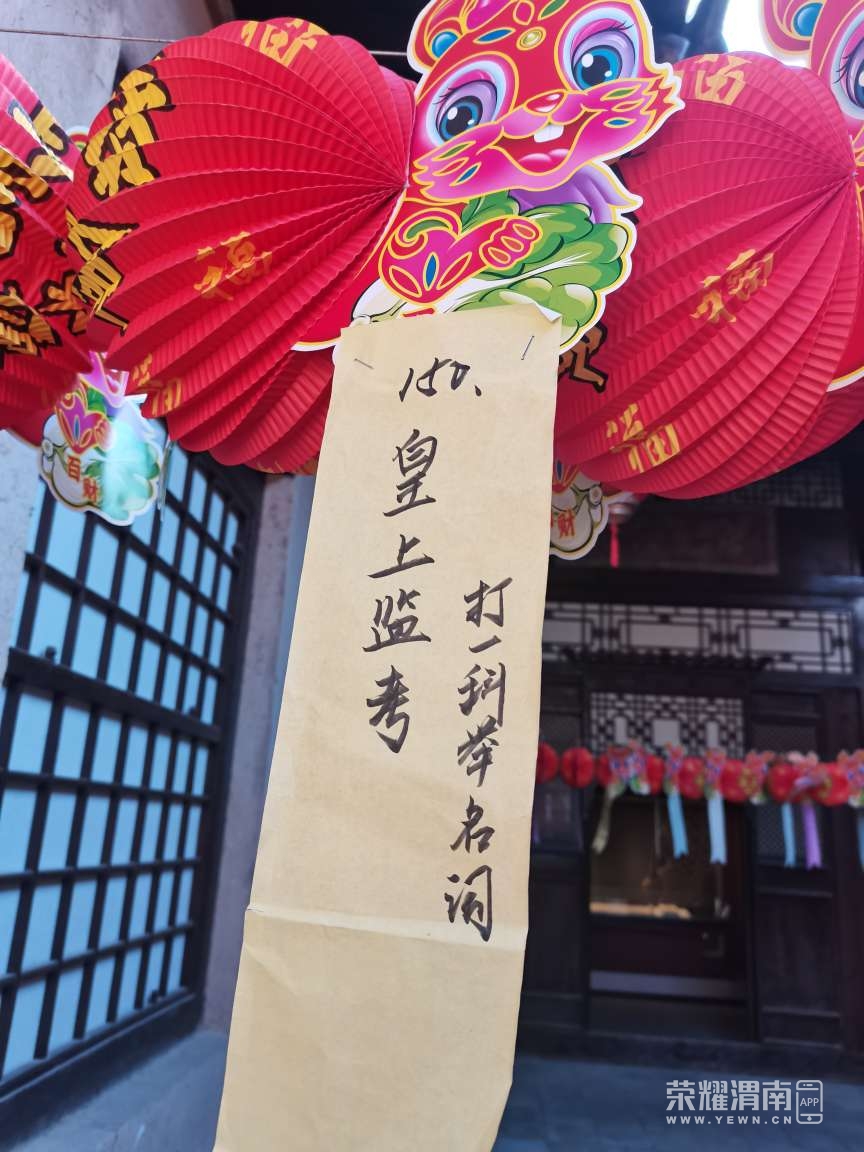 150、
皇上监考
打一科举名词
福
福
福
百财
财
荣耀渭南APP
WWW.YEWN.CN